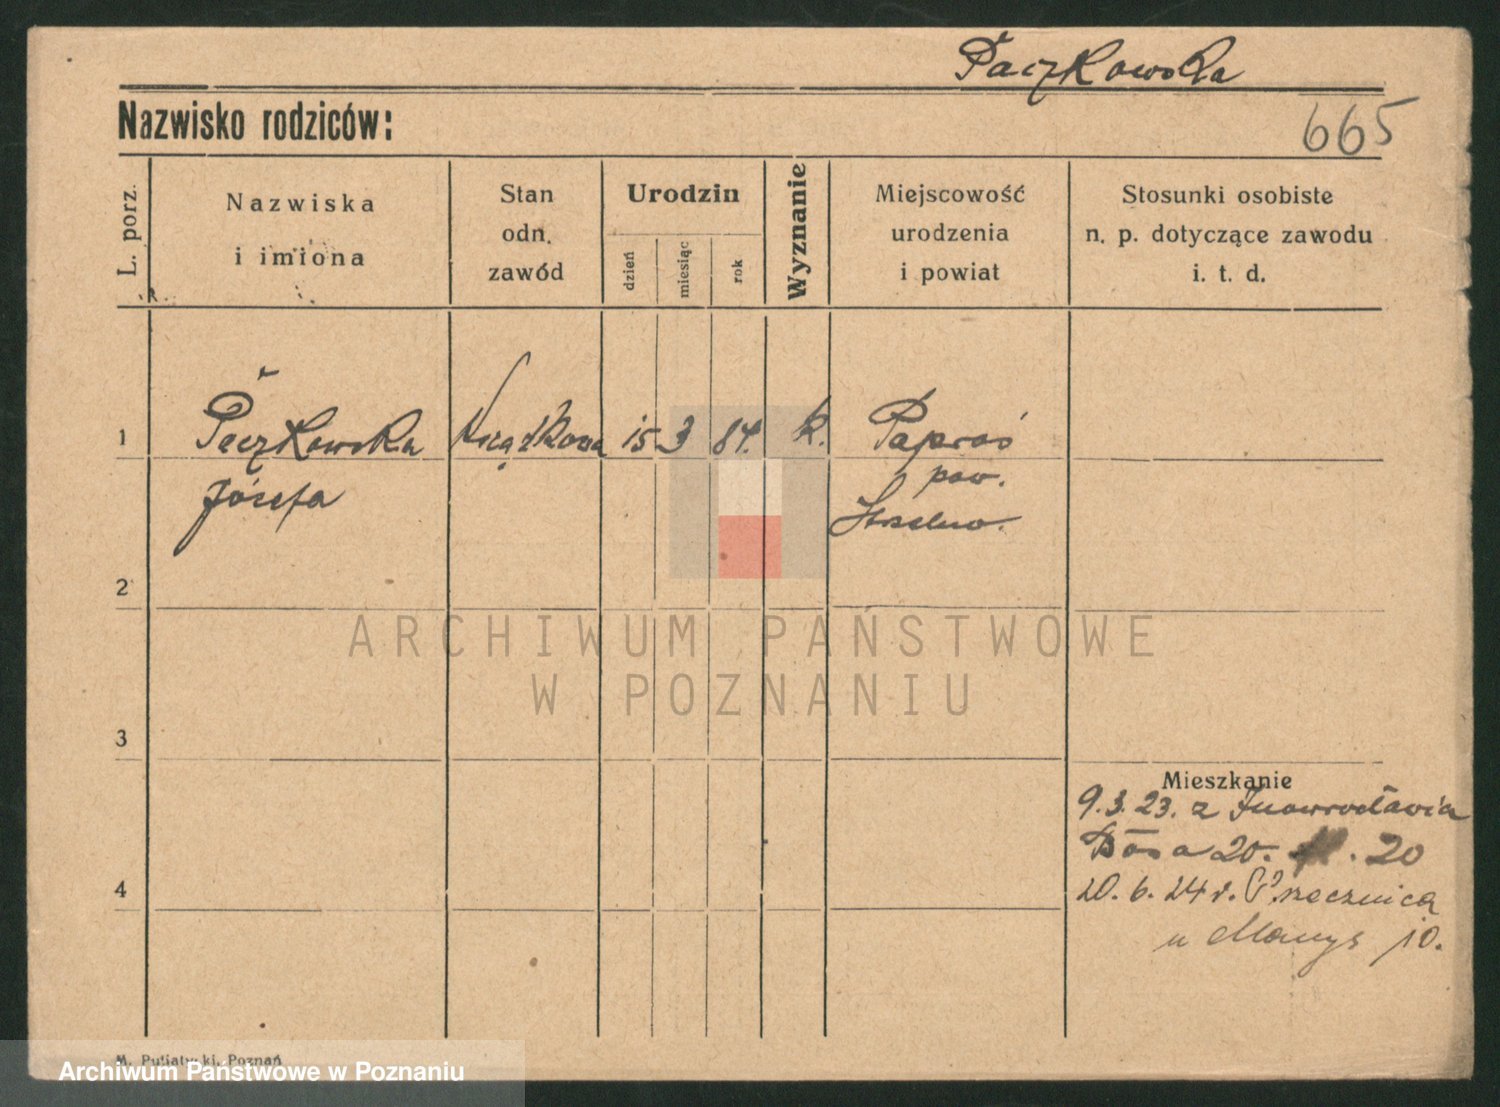 Paczkowska
Nazwisko rodziców:
665
L. porz.
Nazwiska
i imiona
Stan
odn.
zawód
Urodzin
dzień
miesiąc
rok
Wyznanie
Miejscowość
urodzenia
i powiat
Stosunki osobiste
n. p. dotyczące zawodu
i. t. d.
1
Paczkowska
Józefa
15 3 84.
k.
Papros
pow.
Strzelno.
2
3
4
Mieszkanie
9.3.23. z Inowrocławia
20. 20
20.6.24 r.
u 10.
M. Putiatycki, Poznań
ARCHIWUM PAŃSTWOWE
W POZNANIU
Archiwum Państwowe w Poznaniu